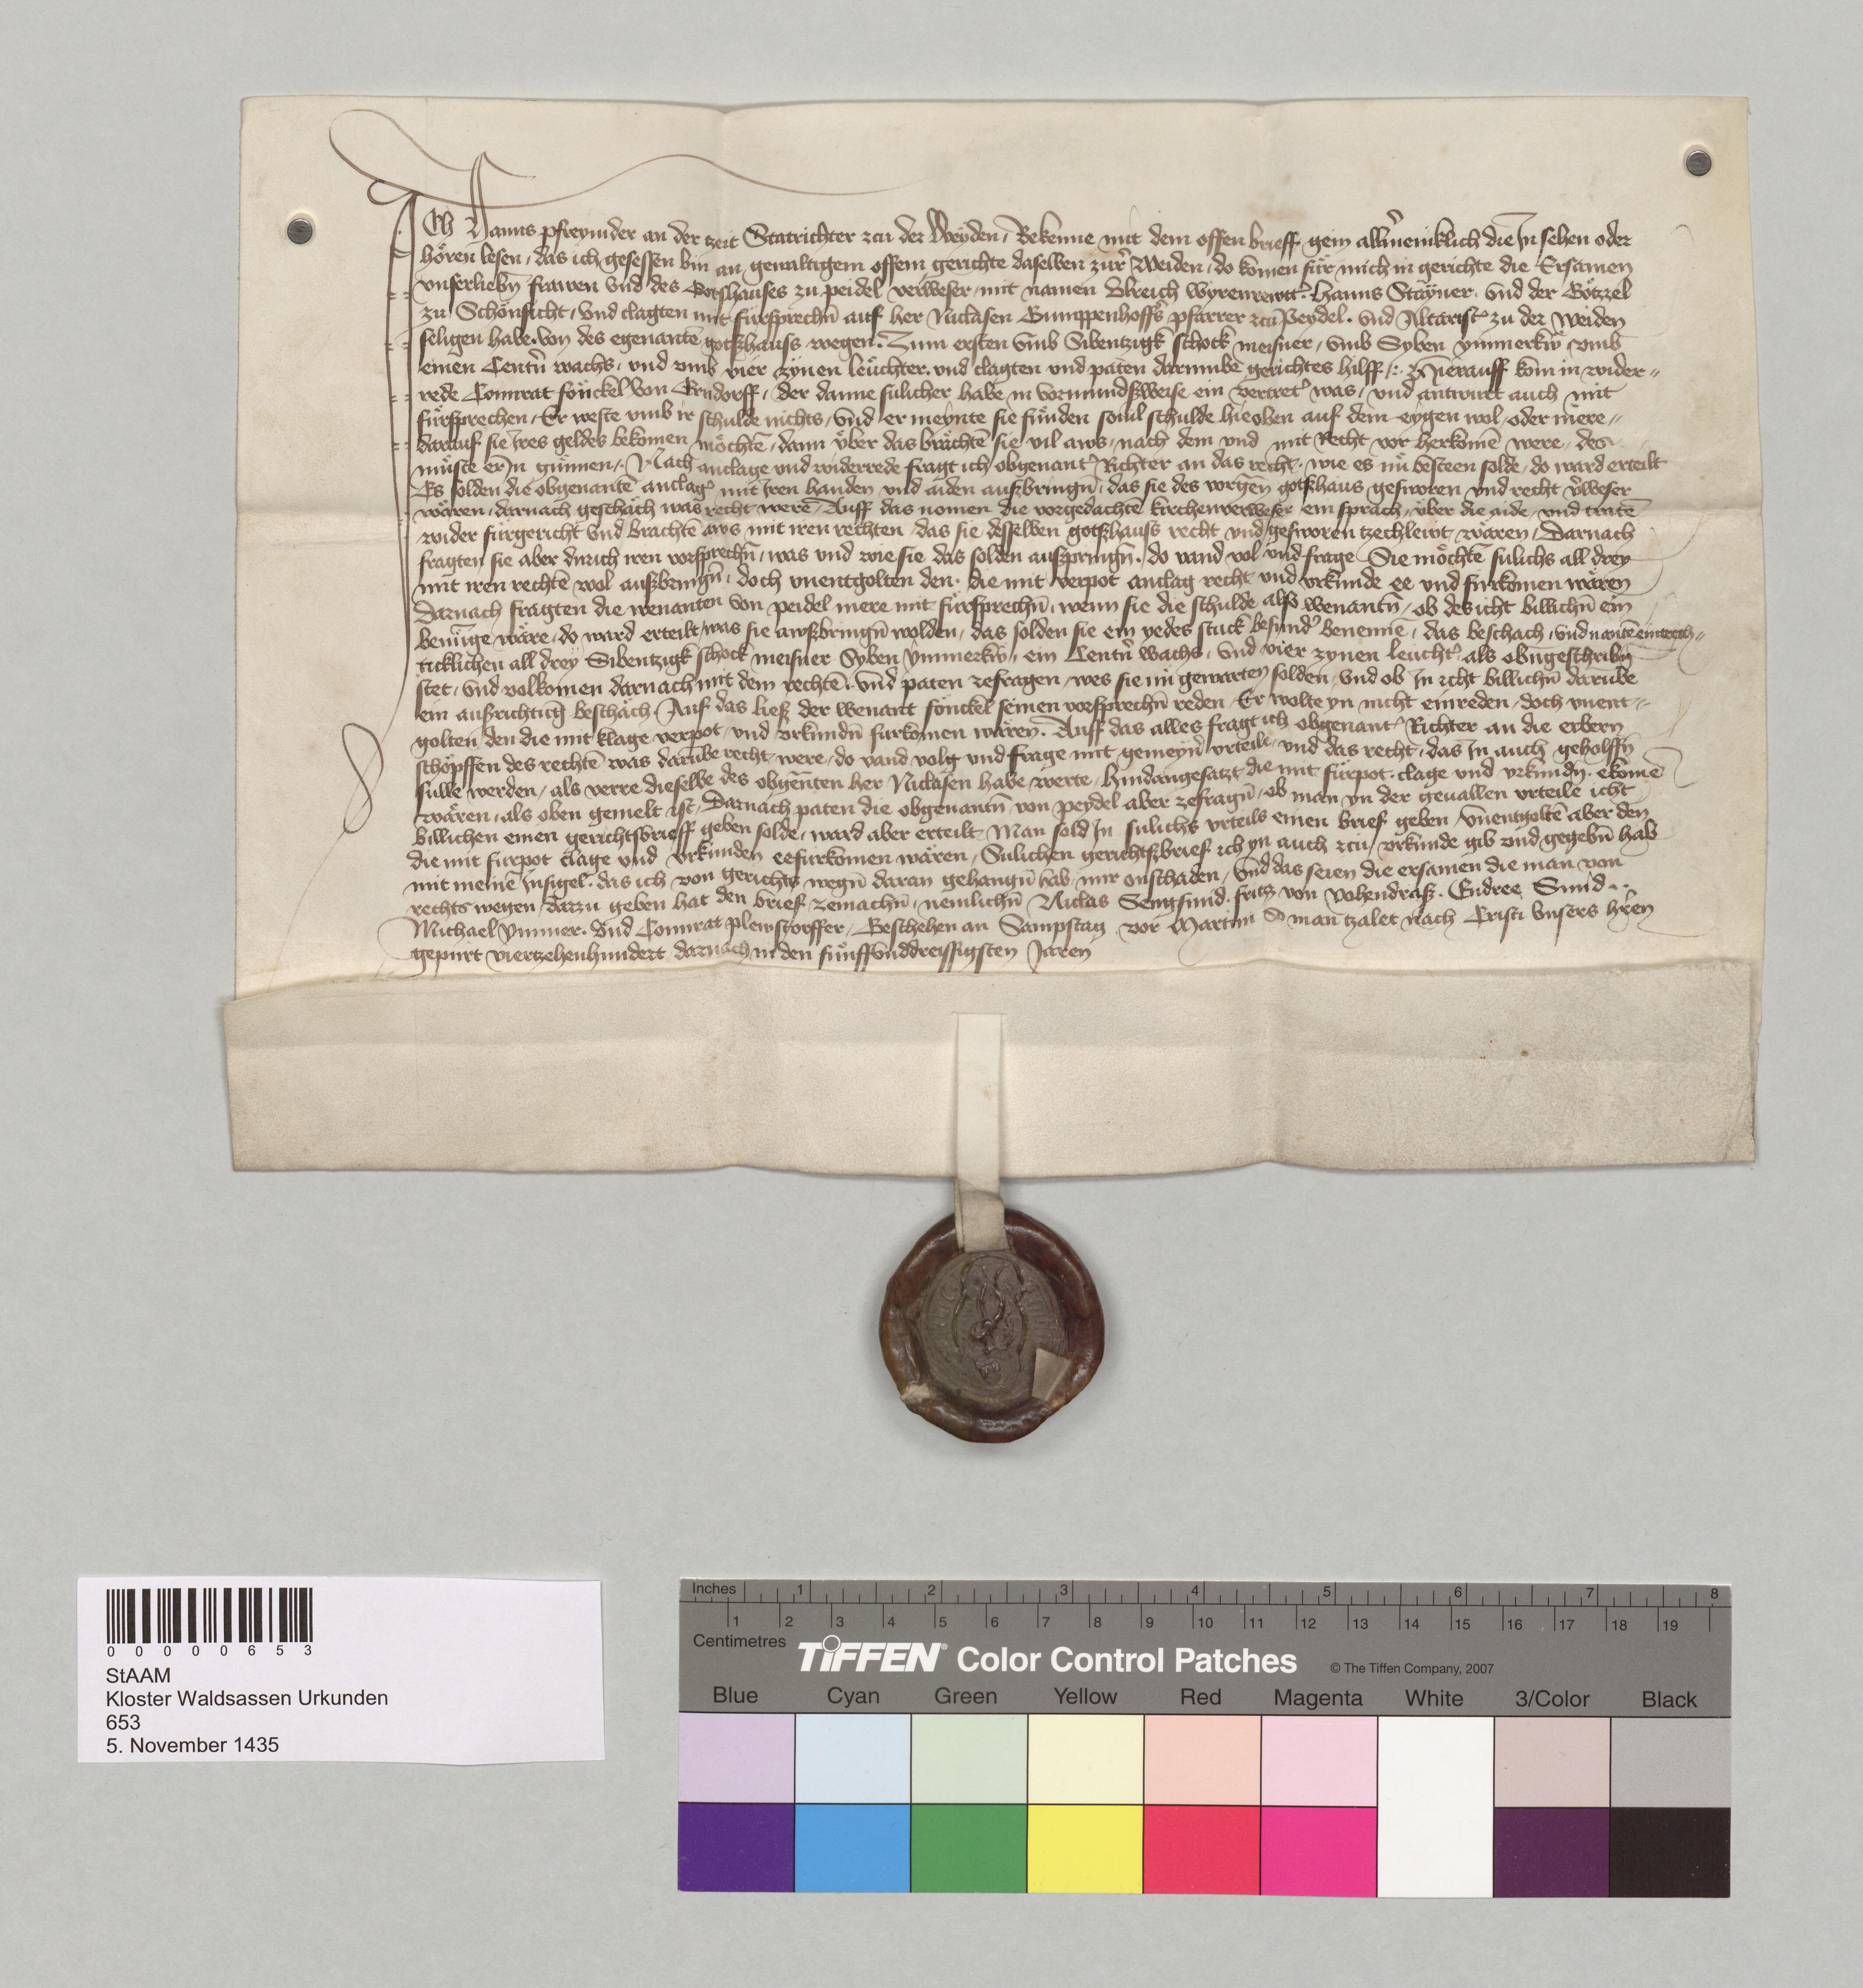 Ich Hanns pfreymder an der zeit Statrichter zcu der Weyden, Bekenne mit dem offen brieff gein allermeniklich die In sehen oder
hören lesen, das ich gesessen bin an gewaltigem offem gerichte daselben zur Weiden, do komen für mich in gerichte die Ersamen
vnserliebn frawen vnd des Gotshauses zu peidel verweser, mit namen Vlreich Wyrenrewtt. Hanns Stayner. vnd der Götzel
zu Schönficht, vnd clagten mit fürsprechn auf her Niclasen Gumppenhoffs pfarrer zcu Peydel. vnd Altarist zu der Weiden
seligen habe. von des egenante gotshauss wegen. Zum ersten vmb Sibentzigk schock meisner, vmb Syben ymmerkw vmb
einen Centn wachs, vnd vmb vier zynen leuchter. vnd clagten vnd paten darumbe gerichtes hilff. Hierauff kom in wider
rede Connrat fönckel von Erndorff, der danne sulicher habe in vormundssweise ein vertret was, vnd antwurt auch mit
fürsprechen, Er weste vmb ir schulde nichts, vnd er meynte sie fünden souil schulde hieoben auf dem eygen wol oder mere
darauf sie ires geldes bekomen möchte, dann über das brächte sie vil aws, nach dem vnd mit Recht vor herkome were, des
müste er In günnen. Nach anclage vnd widerrede fragt ich obgenant Richter an das recht. wie es nu besteen solde, do ward erteilt
Es solden die obgenante anclag mit Iren handen vnd aiden aussbringn, das sie des vorgen gotshaus gesworen vnd recht verweser
wären, darnach geschäch was recht were. Auff das nomen die vorgedachte kirchenverweser ein sprach, über die aide, vnd trate
wider fürgericht vnd brachte aws mit iren rechten, das sie desselben gotshauss recht vnd gesworen tzechlewt wären, Darnach
fragten sie aber durch iren vorsprechn, was vnd wie sie das solden ausspringn. do vand vol vnd frage Sie möchte sulichs all drey
mit iren rechte wol aussbringn, doch vnentgolten den. die mit verpot anclag recht vnd vrkunde ee vnd fürkomen wären
Darnach fragten die wenanten von peidel mere mit fürsprechn, wenn sie die schulde also wenantn, ob des icht billichn ein
benüge wäre, do ward erteilt, was sie awssbringn wolden, das solden sie ein yedes stuck besund benenne, das beschach, vnd nante eintrech
ticklichen all drey Sibentzigk schock meisner Syben ymmerkw, ein Centn wachs, vnd vier zynen leucht als obngeschribn
stet, vnd volkomen darnach mit dem rechte. vnd paten zefragen, wes sie nu gewarten solden, vnd ob In icht billichn darube
ein aussrichtung beschäch. Auf das liess der wenant fönckel seinen vorsprechn reden. Er wolte yn nicht einreden, doch vnent
golten den die mit klage verpot, vnd vrkundn furkomen wären. Auff das alles fragt ich obgenant Richter an die erbern
schöpffen des rechte was darube recht were, do vand volg vnd frage mit gemeyn vrteile, vnd das recht, das In auch geholffn
sulle werden, als verre dieselbe des obgenten her Niclasen habe werte, hindangesatzt die mit fürpot. clage vnd vrkundn. ekome
wären, als oben gemelt ist, Darnach paten die obgenantn von Peydel aber zefragn, ob man yn der geuallen vrteile icht
billichen einen gerichtsbrieff geben solde, ward aber erteilt Man sold In sulichs vrteils einen brief geben, vnentgolte aber den
die mit fürpot clage vnd vrkunden eefurkomen wären, Sulichen gerichtsbrief ich yn auch zcu vrkunde gib vnd gegebn hab
mit meine Insigel. das ich von gerichts wegn daran gehangn hab, mir onschaden, vnd das seien die ersamen die man von
rechts wegen darzu geben hat den brief zemachn, nemlichn Niclas Sengsmid. fritz von Vohendrass. Endree Smid.
Michael ymmer. vnd Connrat plewstorffer, Beschehen an Sampstag vor Martini Do man tzalet nach Cristi vnsers hren
gepurt viertzehenhundert darnach in den fünffvnddreissigsten Jaren
0 0 0 0 0 6 5 3
StAAM
Kloster Waldsassen Urkunden
653
5. November 1435
Inches 1 2 3 4 5 6 7 8
1 2 3 4 5 6 7 8 9 10 11 12 13 14 15 16 17 18 19
Centimetres
TIFFEN® Color Control Patches © The Tiffen Company, 2007
Blue Cyan Green Yellow Red Magenta White 3/Color Black